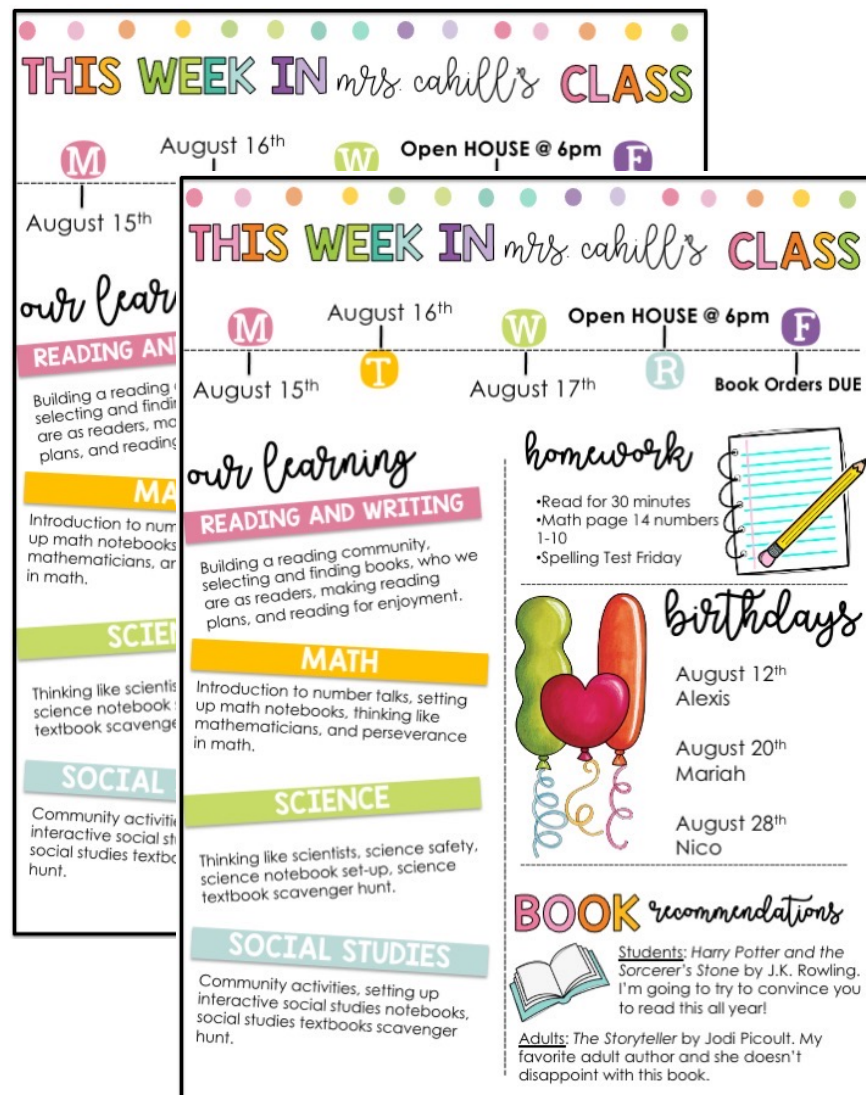 THIS WEEK IN mrs. cahill's CLASS
August 16th
Open HOUSE @ 6pm
M W F
August 15th
our lear
READING AN
Building a reading
selecting and findin
are as readers, ma
plans, and reading
MA
Introduction to num
up math notebooks
mathematicians, an
in math.
SCIEN
Thinking like scientis
science notebook
textbook scavenge
SOCIAL
Community activitie
interactive social st
social studies textbo
hunt.
THIS WEEK IN mrs. cahill's CLASS
August 16th
Open HOUSE @ 6pm
M W F
T R
August 15th
August 17th
Book Orders DUE
our learning
READING AND WRITING
Building a reading community,
selecting and finding books, who we
are as readers, making reading
plans, and reading for enjoyment.
MATH
Introduction to number talks, setting
up math notebooks, thinking like
mathematicians, and perseverance
in math.
SCIENCE
Thinking like scientists, science safety,
science notebook set-up, science
textbook scavenger hunt.
SOCIAL STUDIES
Community activities, setting up
interactive social studies notebooks,
social studies textbooks scavenger
hunt.
homework
•Read for 30 minutes
•Math page 14 numbers
1-10
•Spelling Test Friday
birthdays
August 12th
Alexis
August 20th
Mariah
August 28th
Nico
BOOK recommendations
Students: Harry Potter and the
Sorcerer's Stone by J.K. Rowling.
I'm going to try to convince you
to read this all year!
Adults: The Storyteller by Jodi Picoult. My
favorite adult author and she doesn't
disappoint with this book.